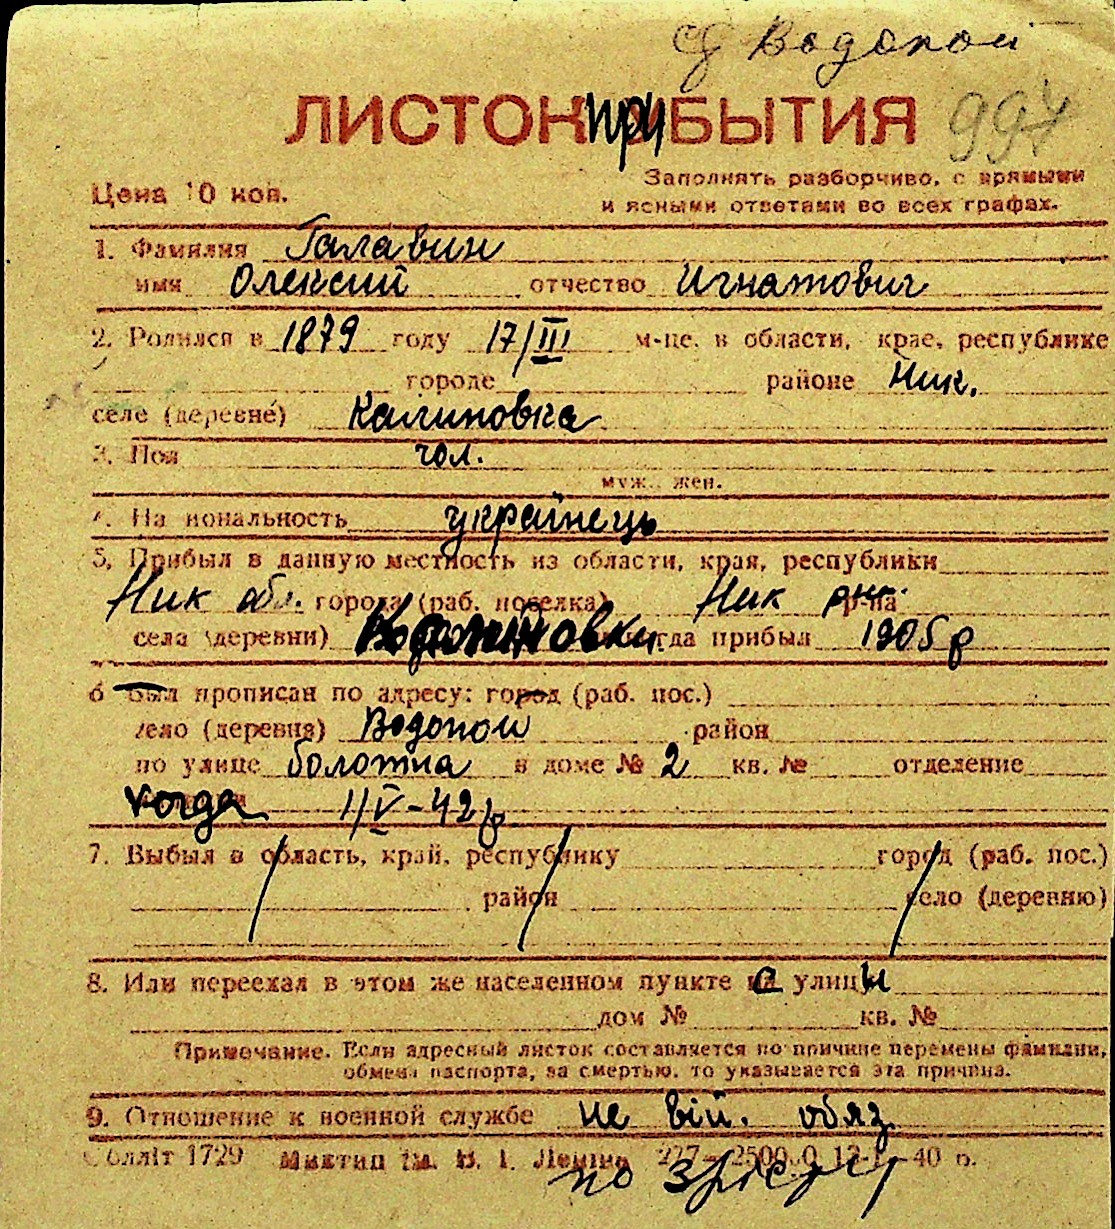 Водопой
ЛИСТОК ПРИБЫТИЯ
997
Цена 10 коп.
Заполнять разборчиво, с прямыми
и ясными ответами во всех графах.
1. Фамилия Галавин
имя Олексий отчество Игнатович
2. Родился в 1879 году 17/III м-це, в области, крае, республике
городе районе Ник.
селе (деревне) Калиновка
3. Пол чол.
муж., жен.
4. Национальность українець
5. Прибыл в данную местность из области, края, республики
Ник обл. города (раб. поселка) Ник рн. р-на
села (деревни) когда прибыл 1905 р
6 Был прописан по адресу: город (раб. пос.)
село (деревня) Водопой район
по улице болотна в доме № 2 кв. № отделение
когда 1/V-42 р
7. Выбыл в область, край, республику город (раб. пос.)
район село (деревню)
8. Или переехал в этом же населенном пункте с улицы
дом № кв. №
Примечание. Если адресный листок составляется по причине перемены фамилии,
обмена паспорта, за смертью, то указывается эта причина.
9. Отношение к военной службе не вій. обяз
Обліт 1729 Миктип ім. В. І. Леніна 12- 40 р.
по